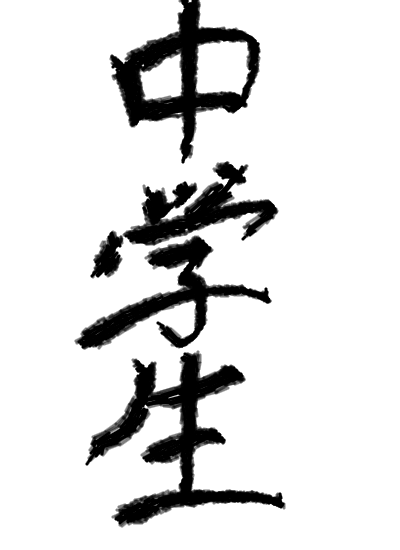 中学生